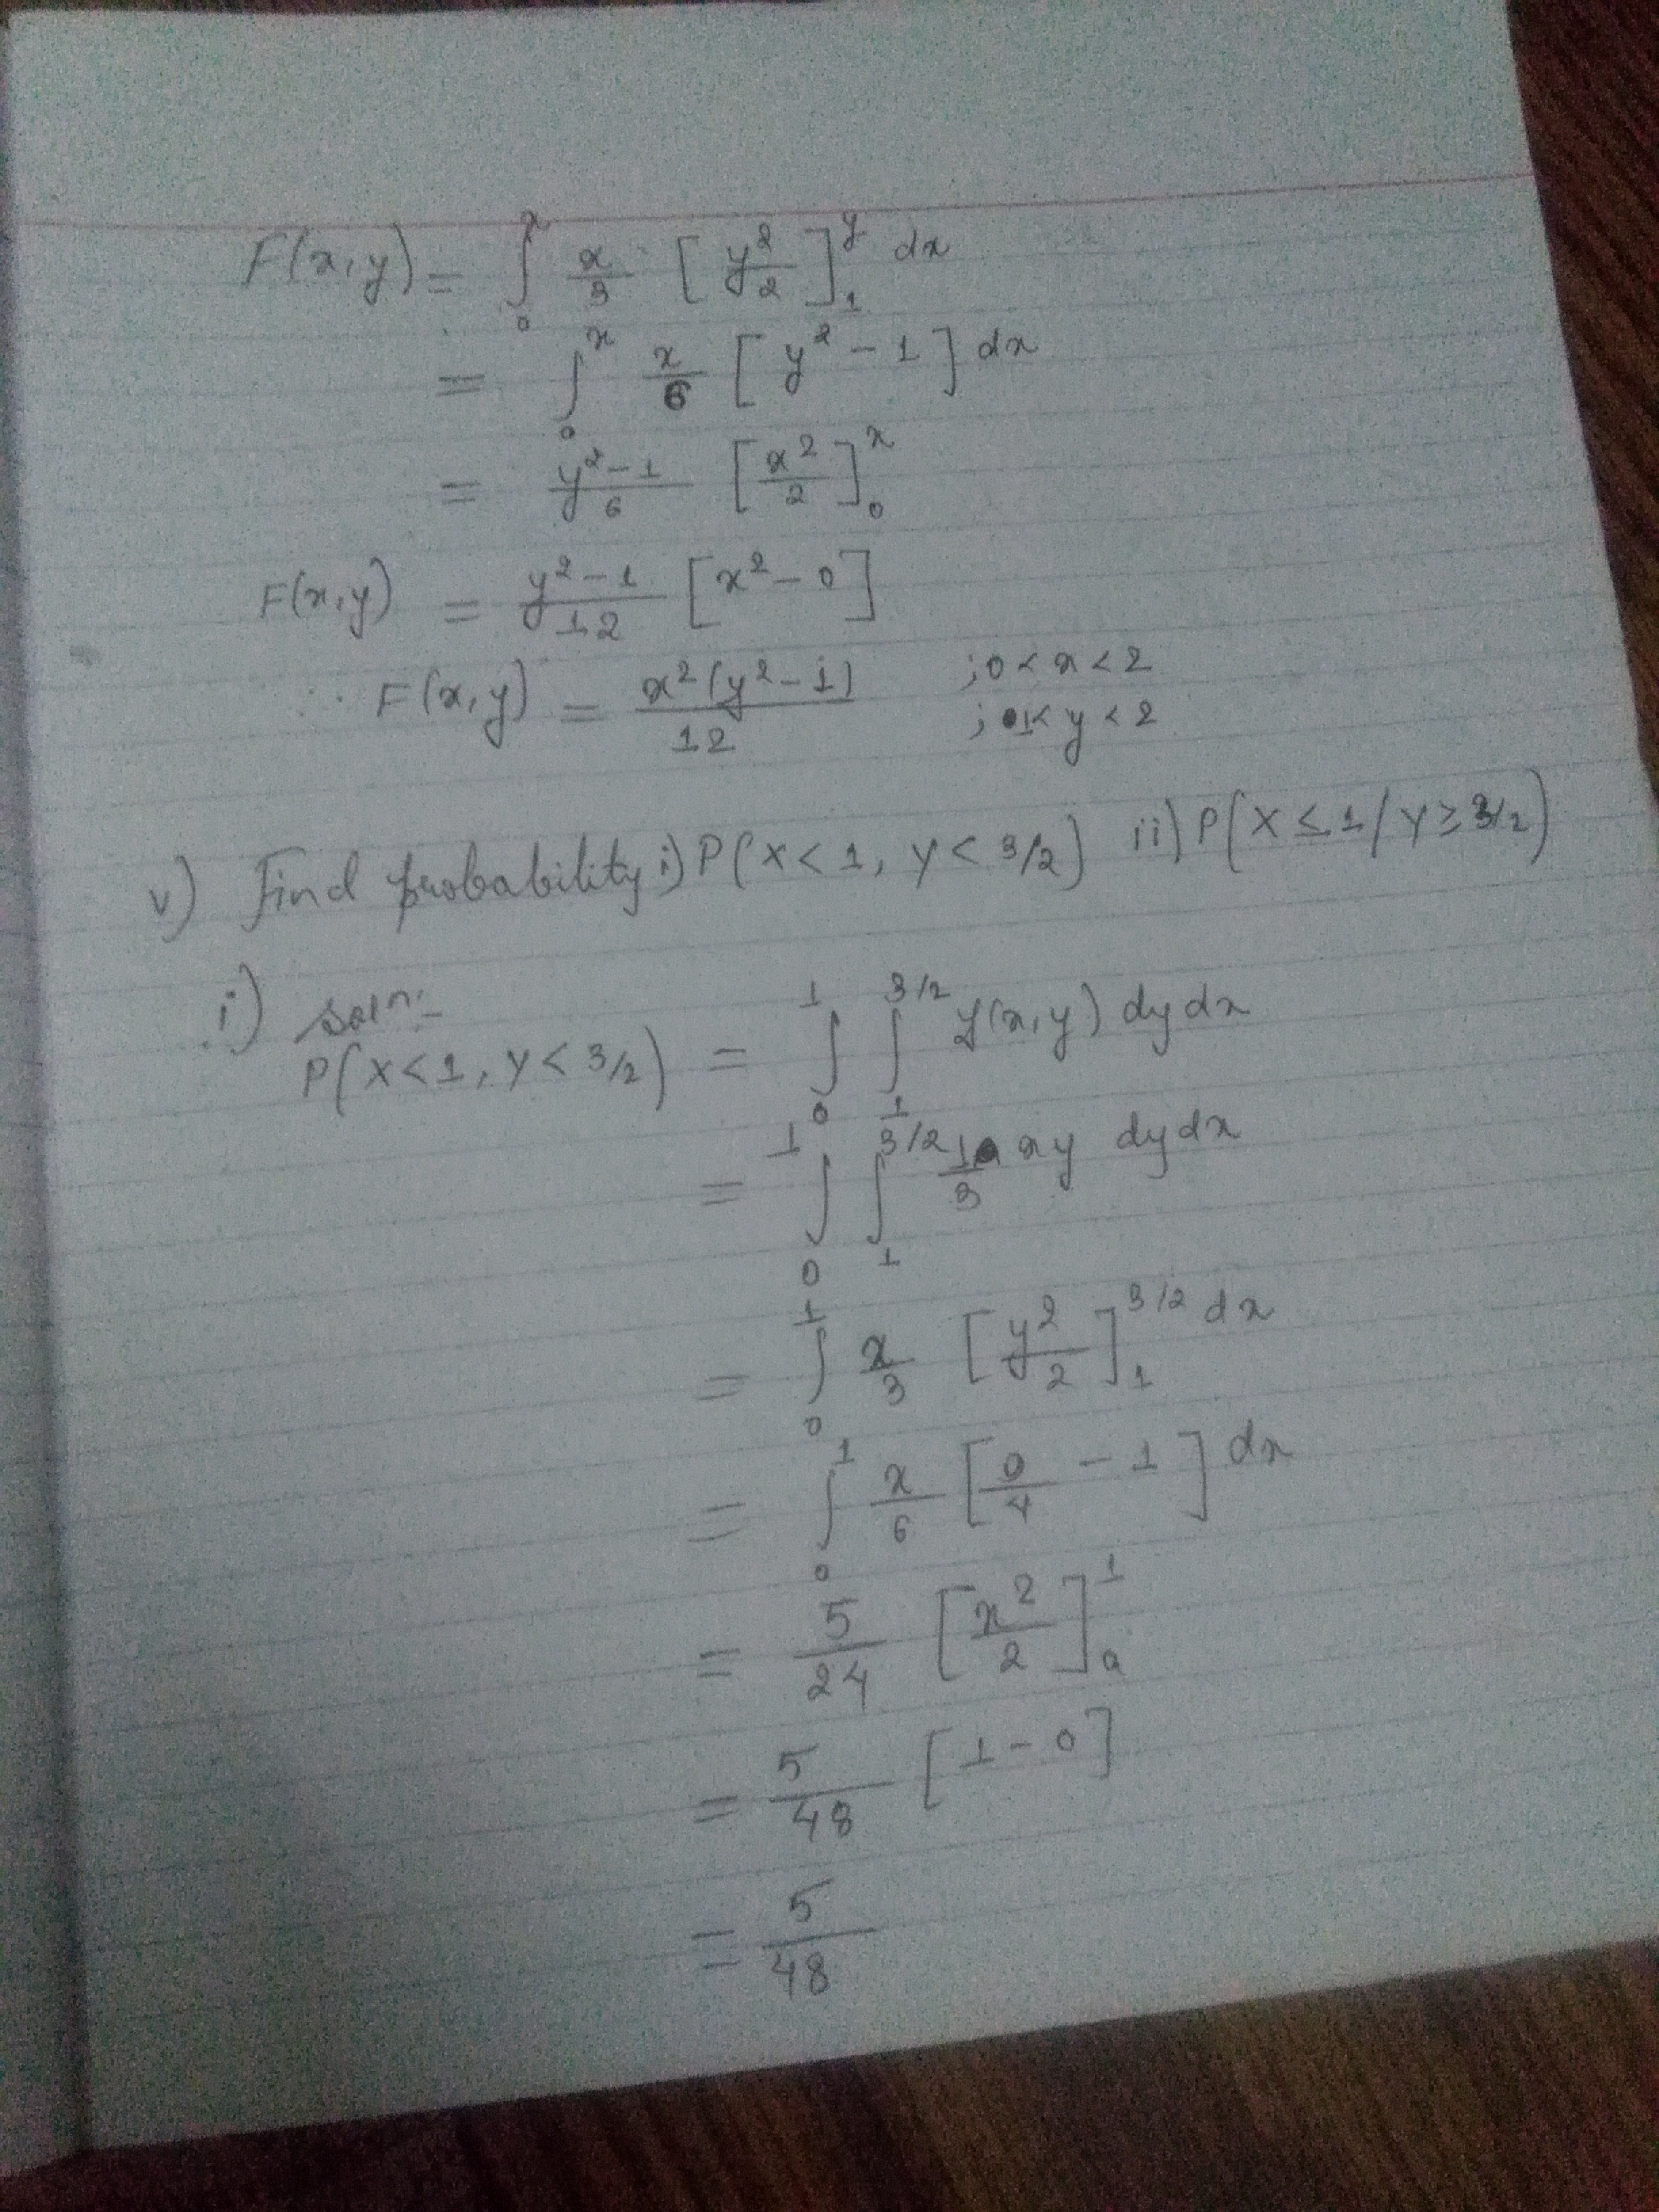 F(x,y) = ∫₀ˣ x/3 [y²/2]₁ʸ dx
= ∫₀ˣ x/6 [y² - 1] dx
= y²-1/6 [x²/2]₀ˣ
F(x,y) = y²-1/12 [x² - 0]
∴ F(x,y) = x²(y²-1)/12 ; 0 < x < 2
; 1 < y < 2
v) Find probability i) P(X < 1, Y < 3/2) ii) P(X ≤ 1 / Y ≥ 3/2)
i) soln:-
P(X < 1, Y < 3/2) = ∫₀¹ ∫₁^3/2 f(x,y) dy dx
= ∫₀¹ ∫₁^3/2 1/3 xy dy dx
= ∫₀¹ x/3 [y²/2]₁^3/2 dx
= ∫₀¹ x/6 [9/4 - 1] dx
= 5/24 [x²/2]₀¹
= 5/48 [1 - 0]
= 5/48